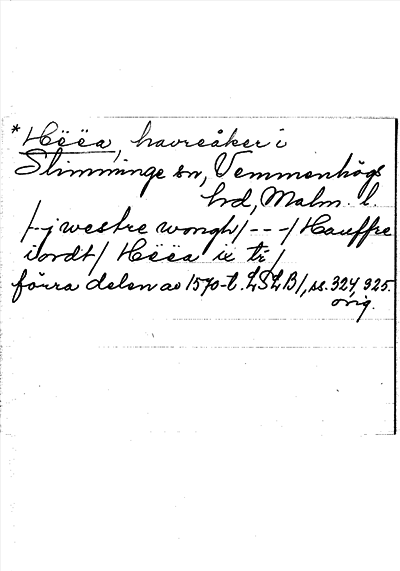 * Hëëa, havreåker i
Slimminge sn, Vemmenhögs
hrd, Malm. l.
/-j westre wongh/---/Hauffre
iordt/ Hëëa ix tr/
förra delen av 1570-t. LSLB/, ss. 324, 325.
orig.